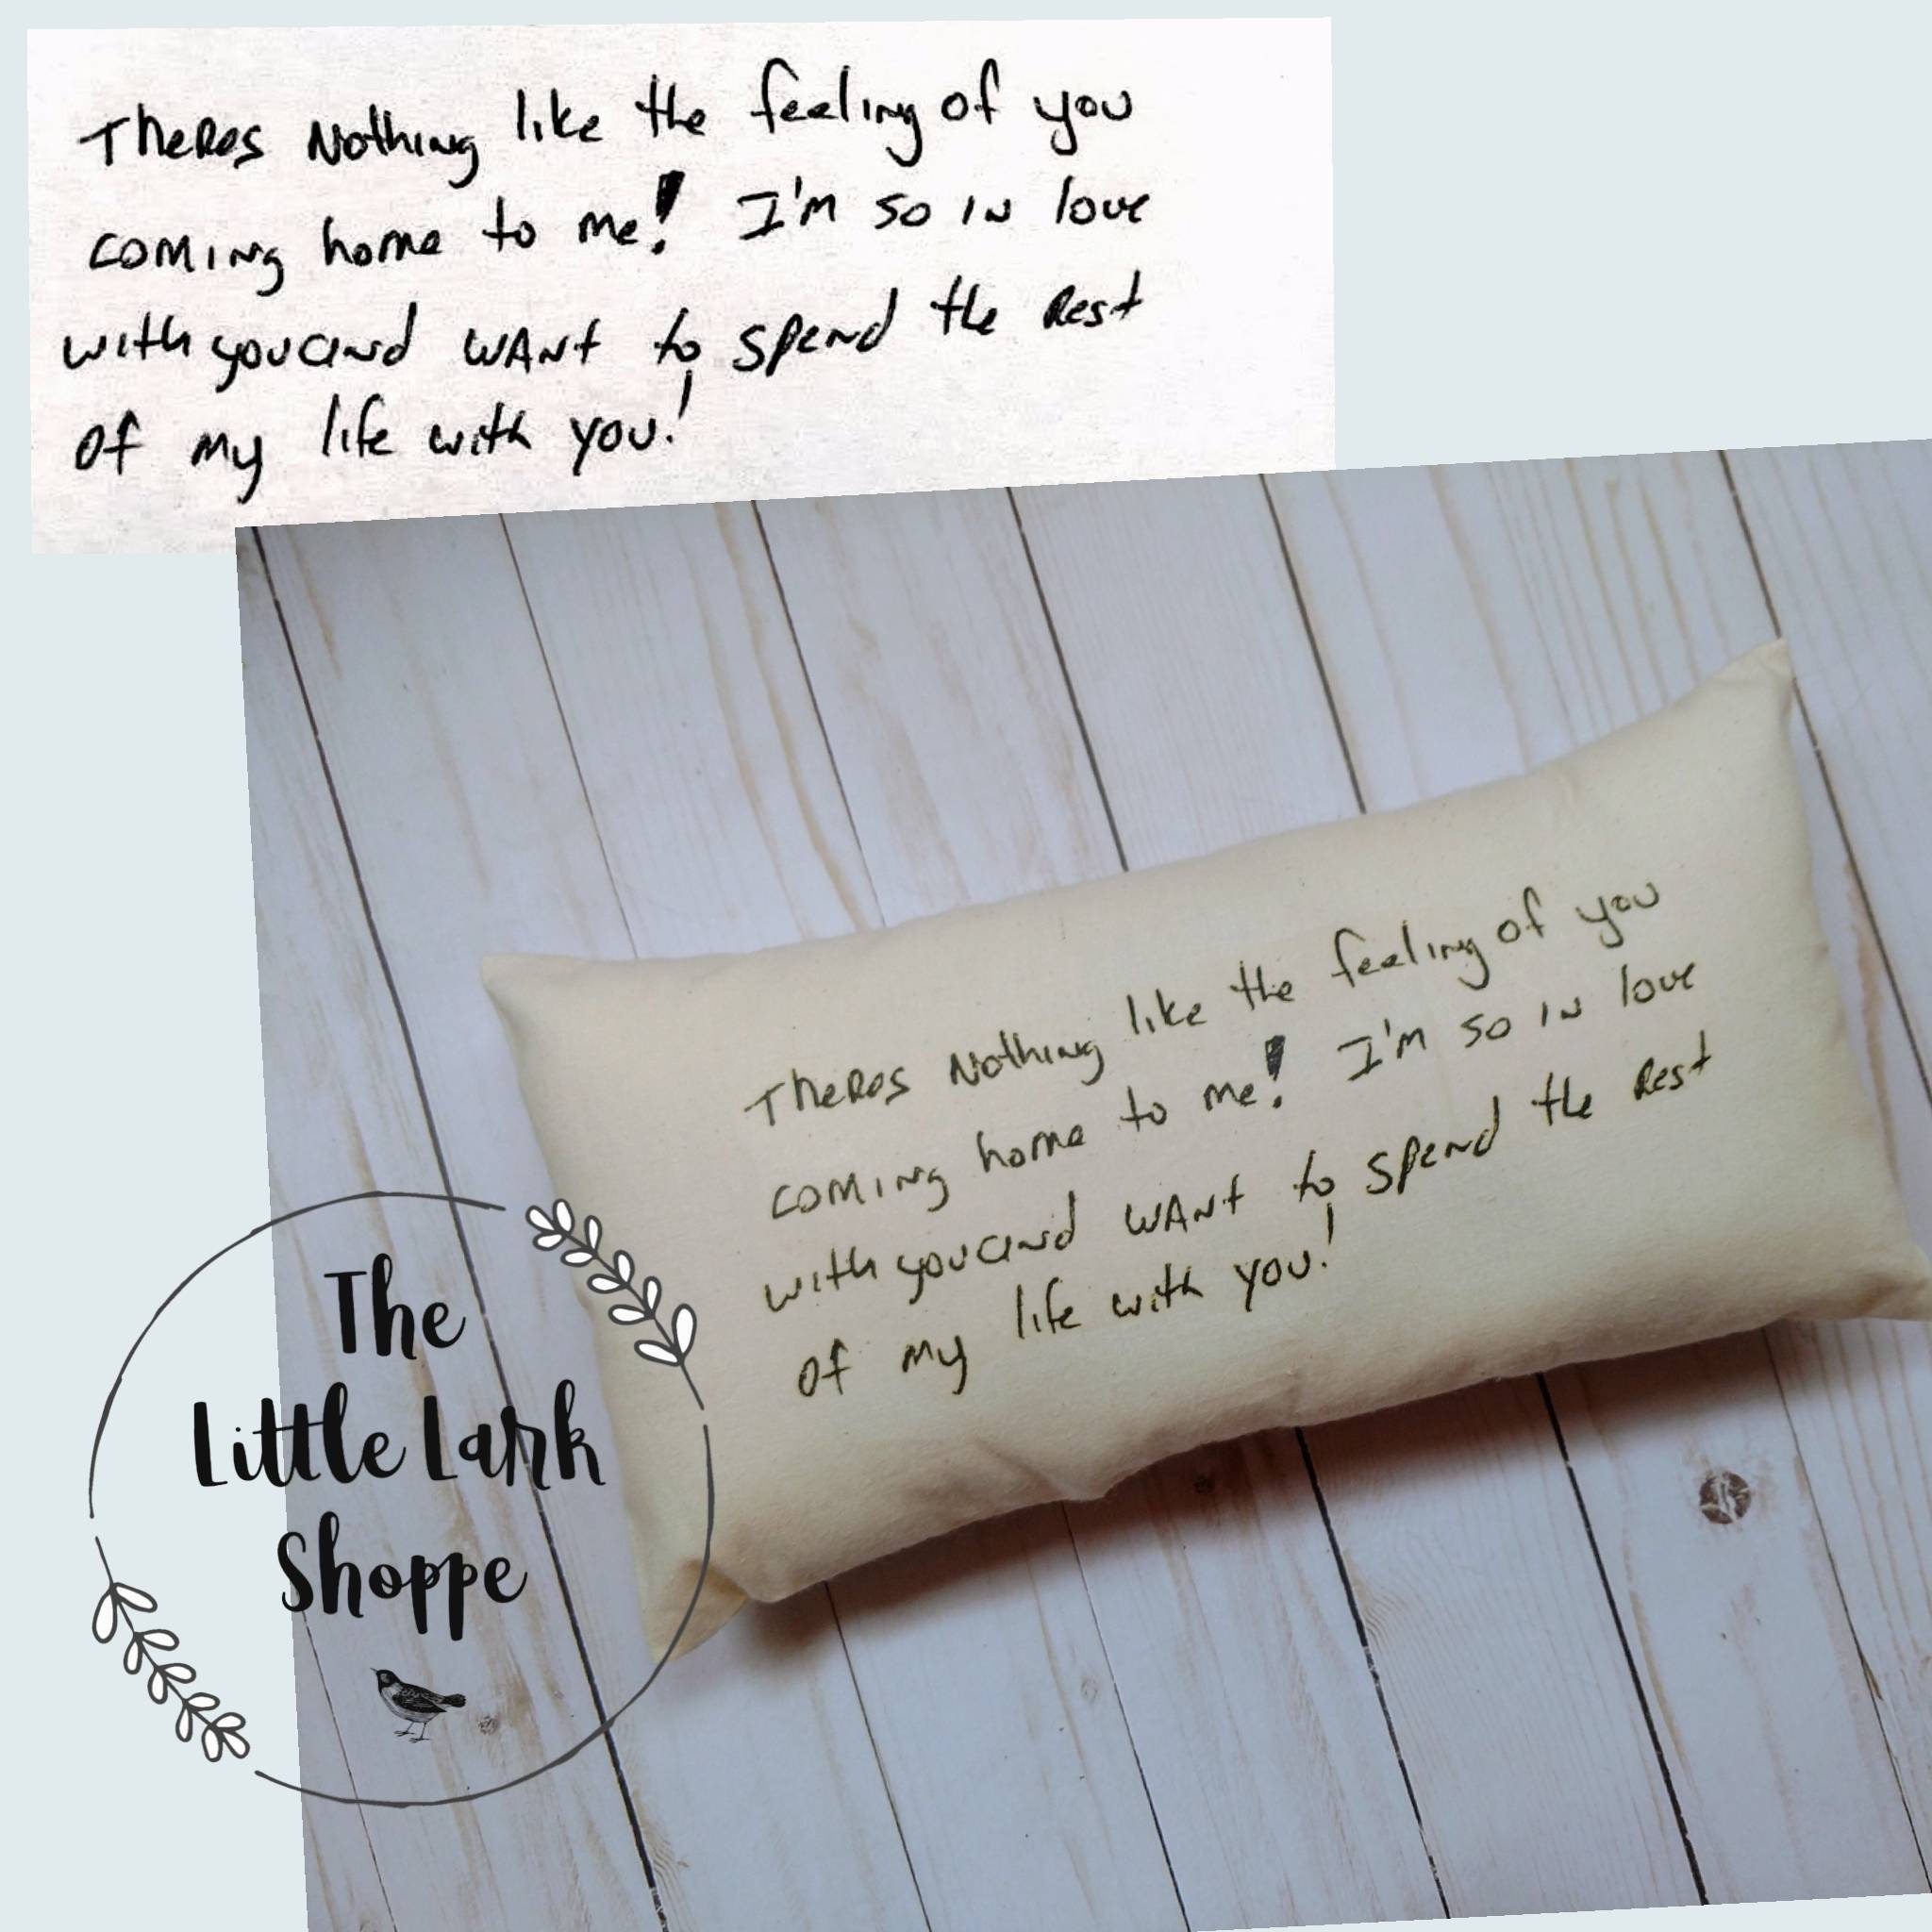 TheRes Nothing like the feeling of you
coming home to me! I'm so in love
with you and want to spend the Rest
of my life with you!
TheRes Nothing like the feeling of you
coming home to me! I'm so in love
with you and want to spend the Rest
of my life with you!
The
Little Lark
Shoppe